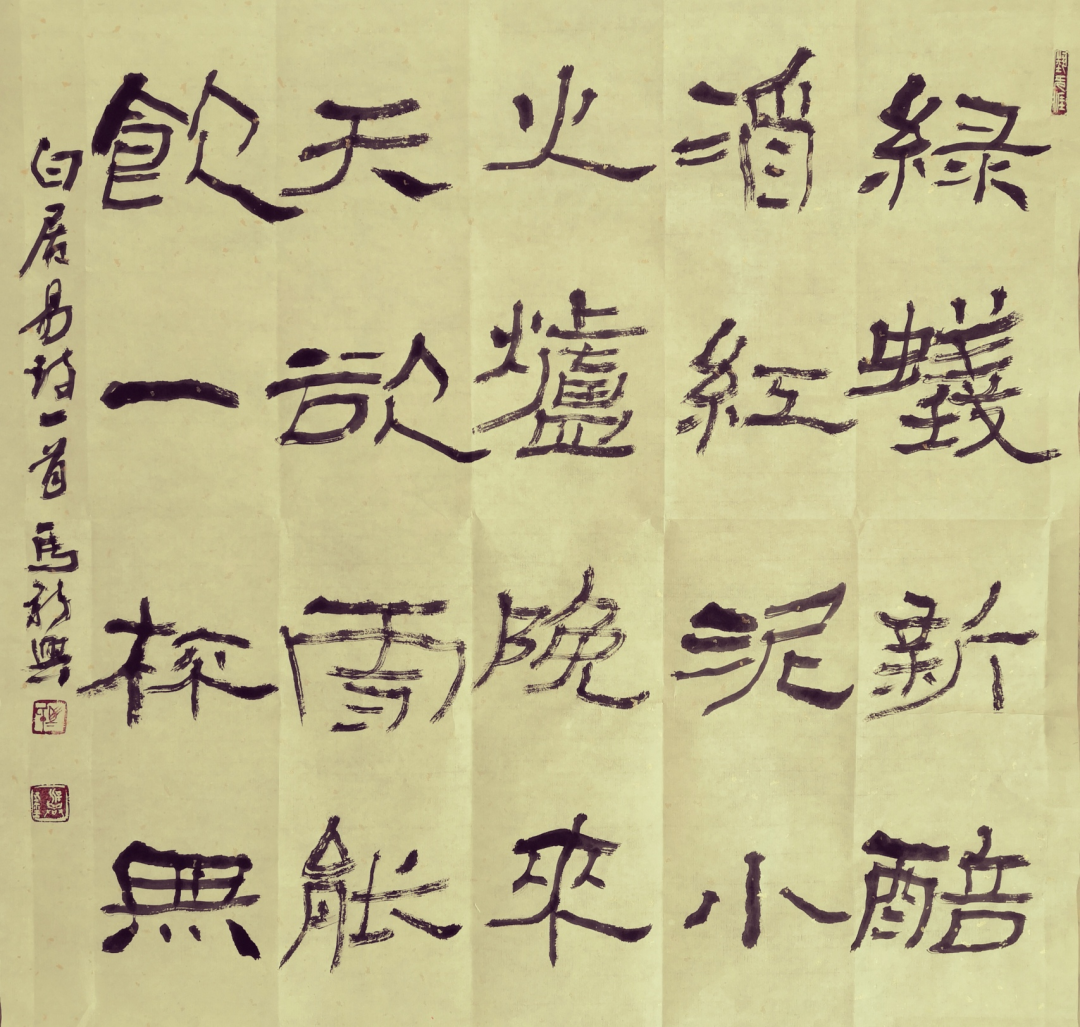 綠蟻新醅
酒紅泥小
火爐晚來
天欲雪能
飲一杯無
白居易詩一首 馬新興